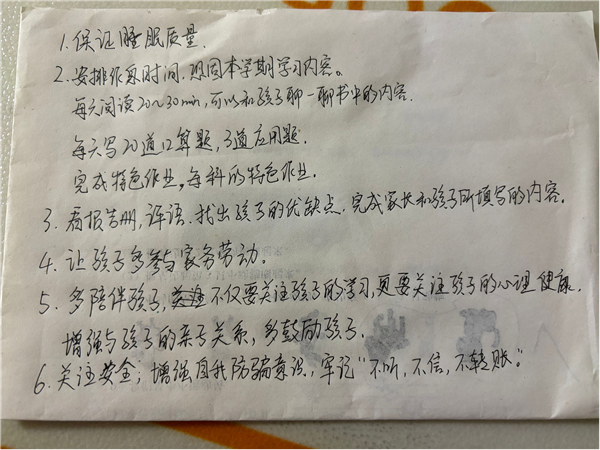 1. 保证睡眠质量.
2. 安排作息时间, 巩固本学期学习内容。
每天阅读20~30min, 可以和孩子聊一聊书中的内容.
每天写20道口算题, 3道应用题.
完成特色作业, 每科的特色作业.
3. 看报告册, 评语. 找出孩子的优缺点. 完成家长和孩子所填写的内容。
4. 让孩子多参与家务劳动。
5. 多陪伴孩子, 不仅要关注孩子的学习, 更要关注孩子的心理健康.
增强与孩子的亲子关系, 多鼓励孩子.
6. 关注安全; 增强自我防骗意识, 牢记“不听, 不信, 不转账。”